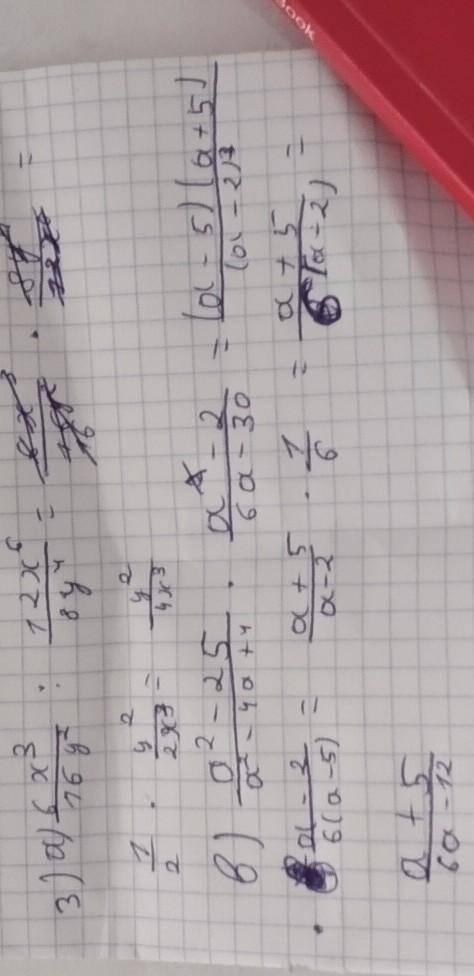 3) а) 6x³/16y² : 12x⁶/8y⁴ = 6x³/16y² · 8y⁴/12x⁶ =
1/2 · y²/2x³ = y²/4x³
в) a²-25/a²-4a+4 · a-2/6a-30 = (a-5)(a+5)/(a-2)²
· a-2/6(a-5) = a+5/a-2 · 1/6 = a+5/6(a-2) =
a+5/6a-12
Book